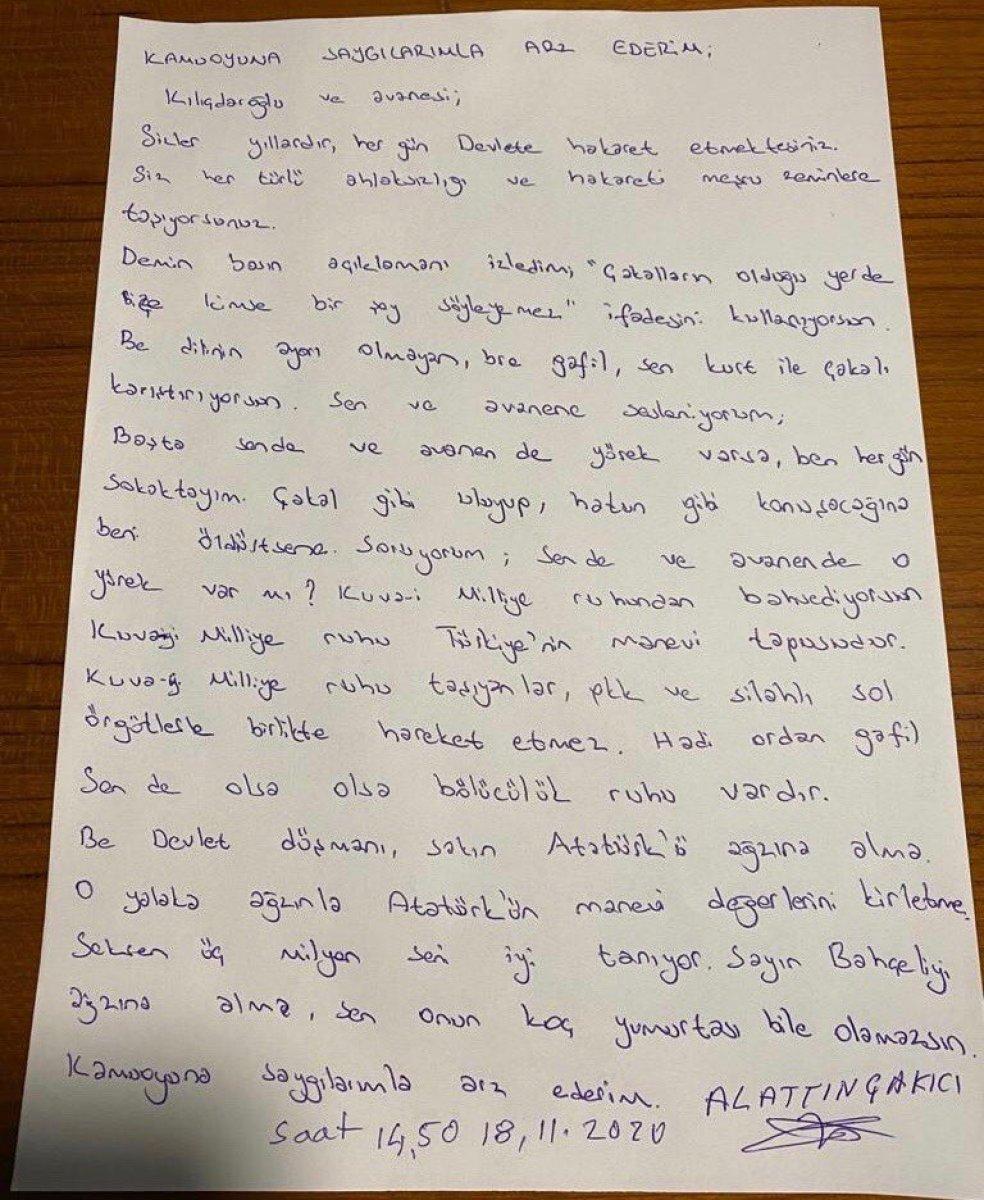 KAMUOYUNA SAYGILARIMLA ARZ EDERİM;
Kılıçdaroğlu ve avanesi;
Sizler yıllardır, her gün Devlete hakaret etmektesiniz.
Siz her türlü ahlaksızlığı ve hakareti meşru zeminlere
taşıyorsunuz.
Demin basın açıklamanı izledim, "Çakalların olduğu yerde
bize kimse bir şey söyleyemez" ifadesini kullanıyorsun.
Be dilinin ayarı olmayan, bre gafil, sen kurt ile çakalı
karıştırıyorsun. Sen ve avanene sesleniyorum;
Başta sende ve avanen de yürek varsa, ben her gün
sokaktayım. Çakal gibi uluyup, hatun gibi konuşacağına
beni öldürtsene. Soruyorum; sen de ve avanende o
yürek var mı? Kuva-i Milliye ruhundan bahsediyorsun
Kuvayi Milliye ruhu Türkiye'nin manevi tapusudur.
Kuva-yi Milliye ruhu taşıyanlar, pkk ve silahlı sol
örgütlerle birlikte hareket etmez. Hadi ordan gafil
Sen de olsa olsa bölücülük ruhu vardır.
Be Devlet düşmanı, sakın Atatürk'ü ağzına alma.
O yalaka ağzınla Atatürk'ün manevi değerlerini kirletme.
Seksen üç milyon seni iyi tanıyor. Sayın Bahçeliyi
ağzına alma, sen onun koç yumurtası bile olamazsın.
Kamuoyuna saygılarımla arz ederim. ALATTİN ÇAKICI
Saat 14,50 18,11.2020